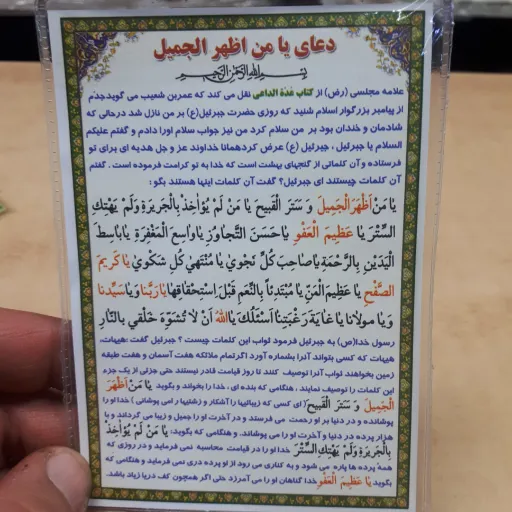 دعای یا من اظهر الجمیل
بسم الله الرحمن الرحیم
علامه مجلسی (رض) از کتاب عدة الداعی نقل می کند که عمربن شعیب می گوید جدم
از پیامبر بزرگوار اسلام شنید که روزی حضرت جبرئیل(ع) بر من نازل شد درحالی که
شادمان و خندان بود بر من سلام کرد من نیز جواب سلام اورا دادم و گفتم علیکم
السلام یا جبرئیل ، جبرئیل (ع) عرض کردهمانا خداوند عز و جل هدیه ای برای تو
فرستاده و آن کلماتی از گنجهای بهشت است که خدا به تو کرامت فرموده است . گفتم
آن کلمات چیستند ای جبرئیل؟ گفت آن کلمات اینها هستند بگو :
یا مَنْ اَظْهَرَ الْجَمیلَ وَ سَتَرَ الْقَبیحَ یا مَنْ لَمْ یُؤاخِذْ بِالْجَریرَةِ وَلَمْ یَهْتِكِ
السِّتْرَ یا عَظیمَ الْعَفْوِ یا حَسَنَ التَّجاوُزِ یا واسِعَ الْمَغْفِرَةِ یا باسِطَ
الْیَدَیْنِ بِالرَّحْمَةِ یا صاحِبَ كُلِّ نَجْوی یا مُنْتَهی كُلِّ شَكْوی یا كَریمَ
الصَّفْحِ یا عَظیمَ الْمَنِّ یا مُبْتَدِئاً بِالنِّعَمِ قَبْلَ اسْتِحْقاقِها یا رَبَّنا وَ یا سَیِّدَنا
وَ یا مَوْلانا یا غایَةَ رَغْبَتِنا اَسْئَلُكَ یا اَللهُ اَنْ لا تُشَوِّهَ خَلْقی بِالنّارِ
رسول خدا(ص) به جبرئیل فرمود ثواب این کلمات چیست ؟ جبرئیل گفت :هیهات،
هیهات که کسی بتواند آنرا بشماره آورد اگرتمام ملائکه هفت آسمان و هفت طبقه
زمین بخواهند ثواب آنرا توصیف کنند تا روز قیامت قادر نیستند حتی جزئی از یک جزء
این کلمات را توصیف نمایند ، هنگامی که بنده ای ، خدا را بخواند و بگوید یا مَنْ اَظْهَرَ
الْجَمیلَ وَ سَتَرَ الْقَبیحَ (ای کسی که زیبائیها را آشکار و زشتیها ر امی پوشانی ) خدا او را
پوشانده و در دنیا بر او رحمت می فرستد و در آخرت او را جمیل و زیبا می گرداند و با
هزار پرده در دنیا و آخرت او را می پوشاند. و هنگامی که بگوید: یا مَنْ لَمْ یُؤاخِذْ
بِالْجَریرَةِ وَلَمْ یَهْتِكِ السِّتْرَ خدا او را در قیامت محاسبه نمی فرماید و در روزی که
همهٔ پرده ها پاره می شود و به کناری می رود از او پرده دری نمی فرماید و هنگامی که
بگوید یا عَظیمَ الْعَفْوِ خدا گناهان او را می آمرزد حتی اگر همچون کف دریا زیاد باشد.